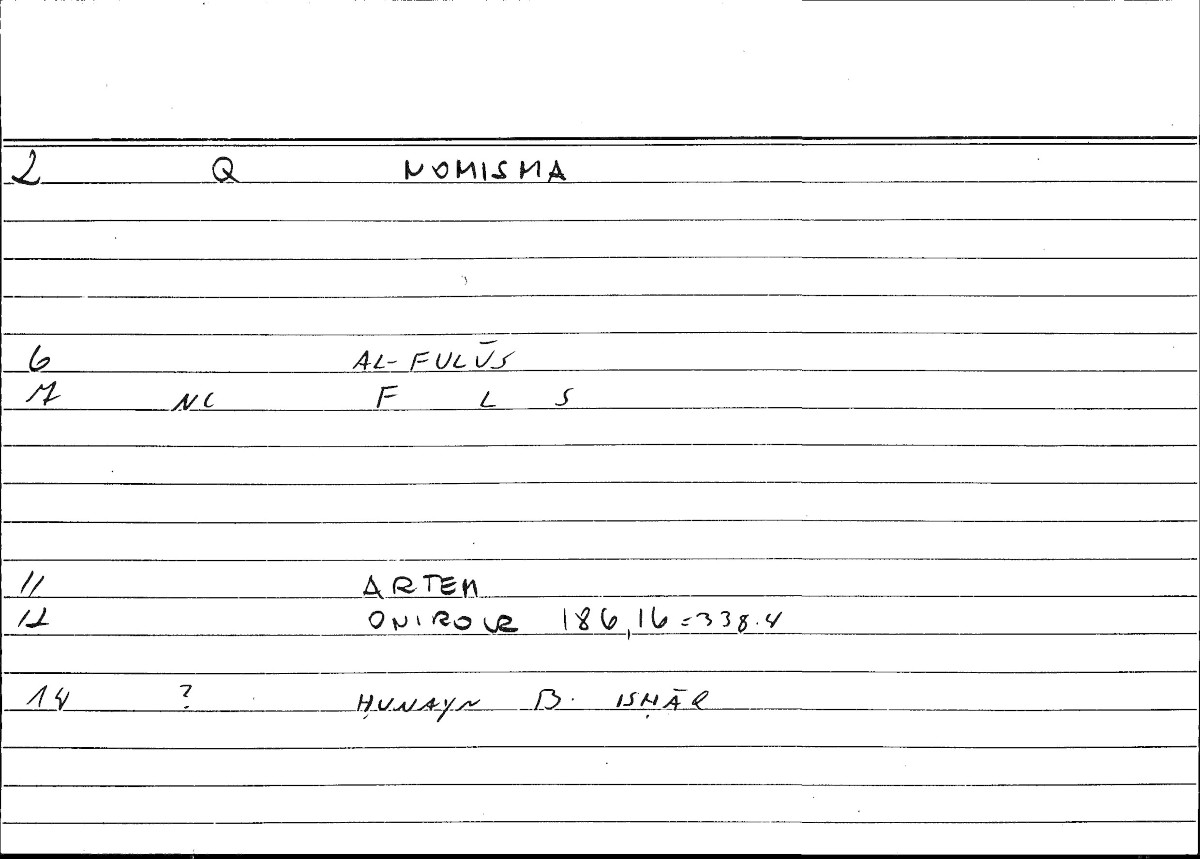 2 Q NOMISMA
6 AL-FULŪS
7 NC F L S
11 ARTEM
12 ONIROCR 186,16=338.4
14 ? ḤUNAYN B. ISḤĀQ